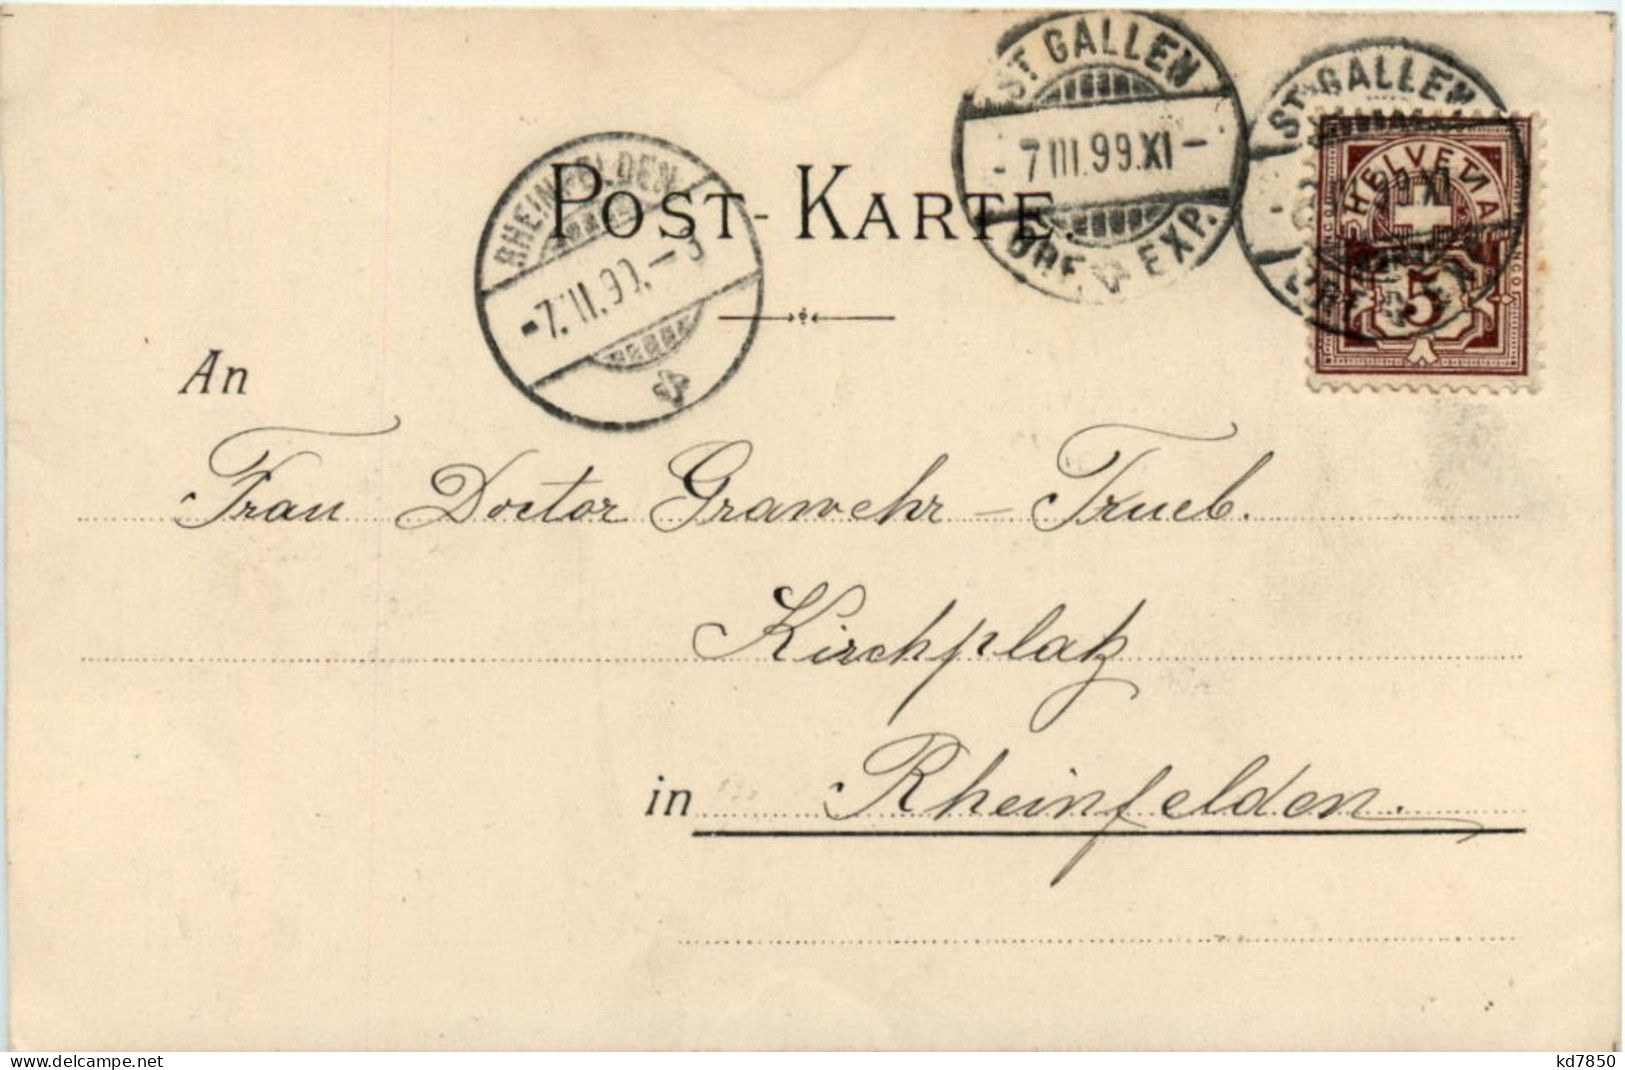 ST GALLEN
-7 III.99.XI-
BRF. EXP.
ST GALLEN
HELVETIA
FRANCO
5
RHEINFELDEN
-7.III.99.-
POST-KARTE.
An
Frau Doctor Grawehr-Trueb.
Kirchplatz
in Rheinfelden.
www.delcampe.net
kd7850